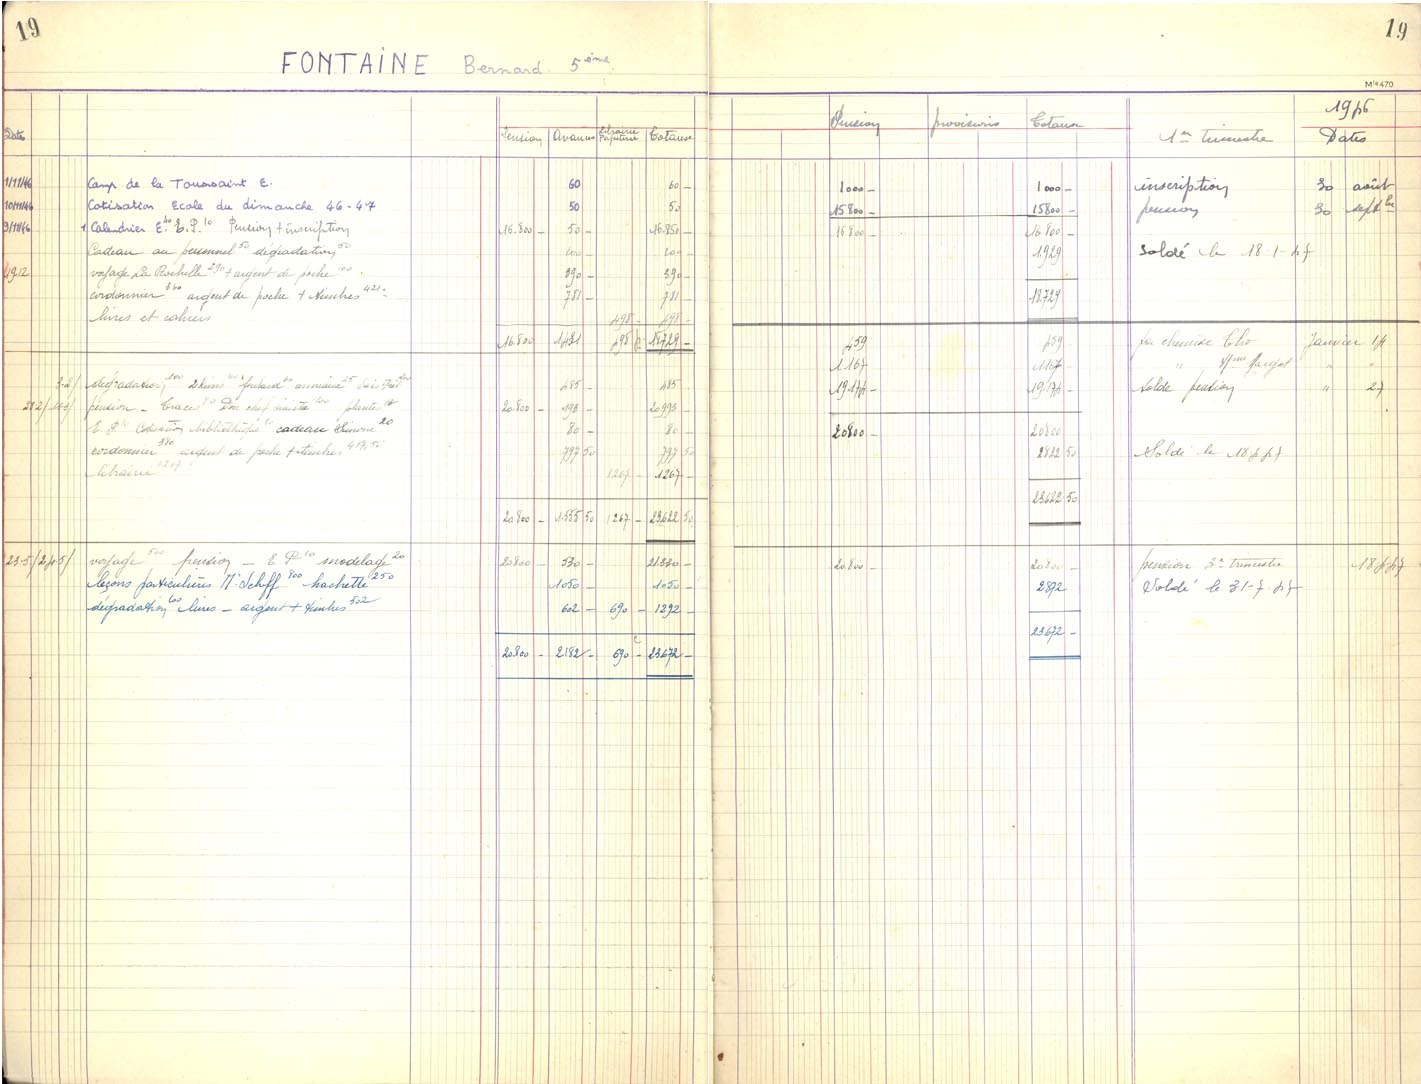 19
FONTAINE Bernard. 5ème
Dates Pension Avances Librairie Papeterie Totaux
1/11/46 Camp de la Toussaint E. 60 60 -
10/11/46 Cotisation Ecole du dimanche 46-47 50 50
9/11/46 1 Calendrier E.40 E.P.10 Pension + inscription 16.800 - 50 - 16.850 -
Cadeau au personnel 50 dégradation 50 100 - 100 -
19.12 voyage La Rochelle 290 + argent de poche 100 390 - 390 -
cordonnier 360 argent de poche + timbres 421 - 781 - 781 -
livres et cahiers 498 - 498 -
16.800 1431 498 18729 -
dégradation 485 - 485 -
pension - 20.800 - 193 - 20993 -
E.P. 10 Cotisation bibliothèque cadeau Simone 20 80 - 80 -
cordonnier 380 argent de poche + timbres 417,50 797 50 797 50
librairie 1267 1267 - 1267 -
20.800 - 1.555 50 1267 - 23622 50
voyage 500 pension - E P 10 modelage 20 20800 - 530 - 21.330 -
leçons particulières Mr Schiff 800 hachette 250 1050 - 1050 -
dégradation 100 livres - argent + timbres 502 602 - 690 - 1292 -
20.800 - 2182 - 690 - 23672 -
19
Mle 470
Pension provisions Totaux 1er trimestre 1946 Dates
1000 - 1000 - inscription 30 août
15800 - 15800 - pension 30 septbre
16800 - 16800 -
1929 Soldé le 18-1-47
18.729
459 459 chemise Janvier 14
1167 1167 - " " "
19174 - 19174 - Solde pension " 27
20800 - 20800
2822 50 Soldé le 18 4 47
23622 50
20.800 - 20.800 - pension 3e trimestre 18 4 47
2872 Soldé le 31-7-47
23672 -